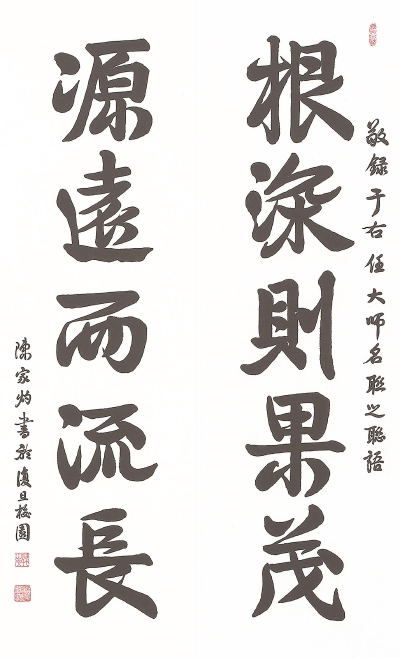 敬錄于右任大師名聯之聯語
根深則果茂
源遠而流長
陳家灼書於復旦校園